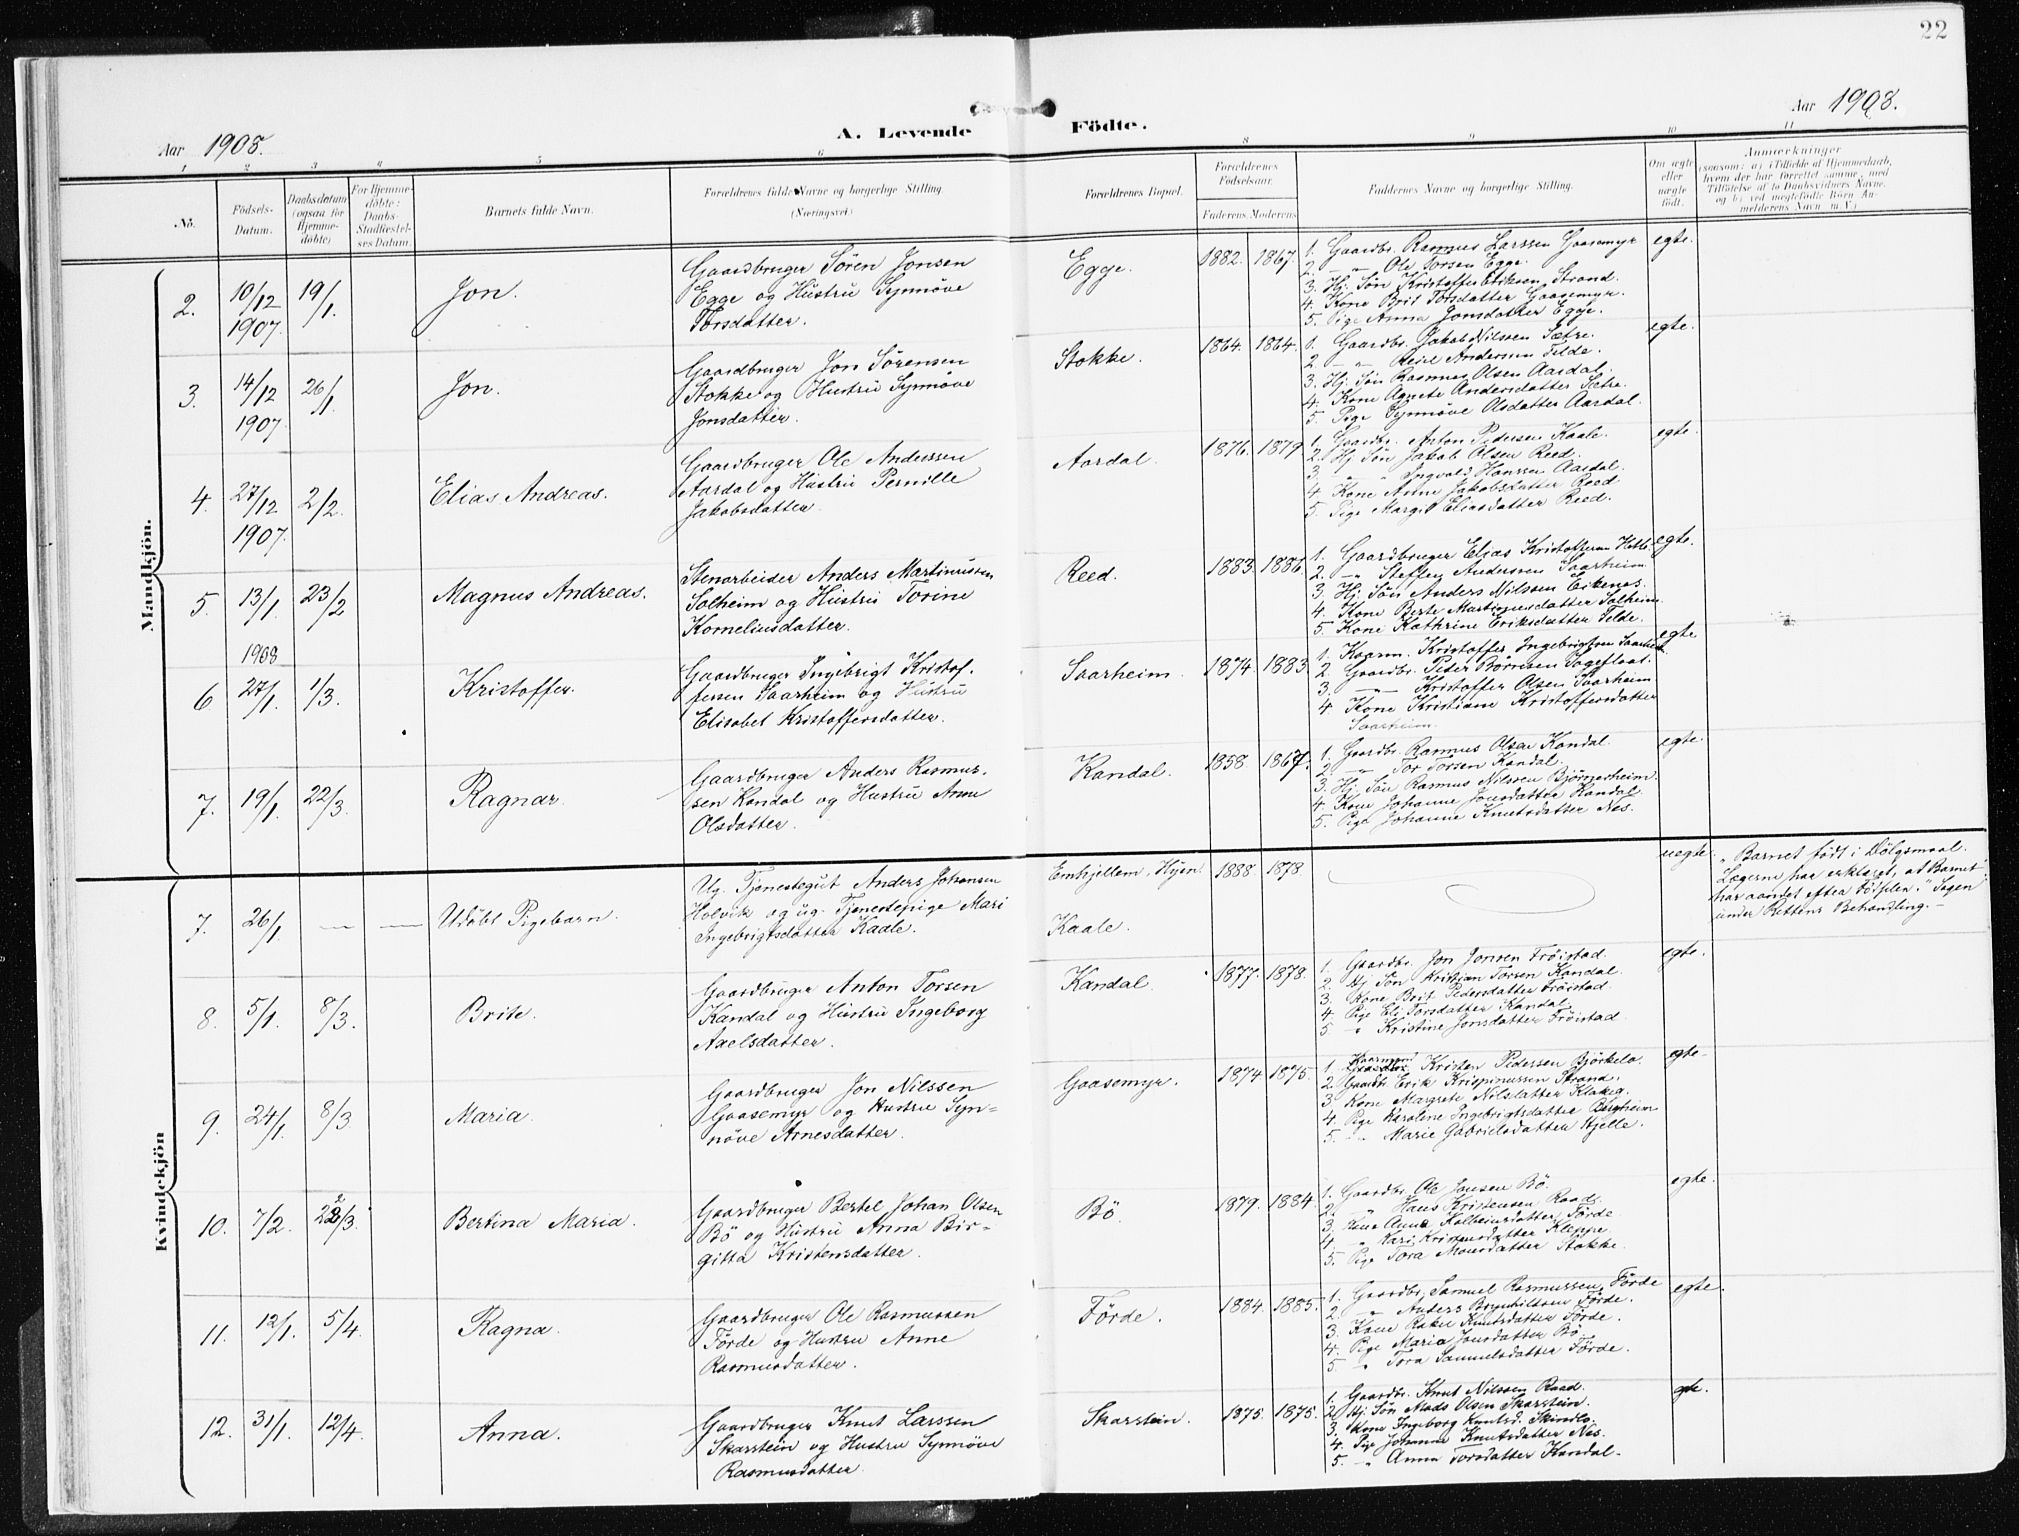 22
Aar 1908. A. Levende Födte. Aar 1908.
1 2 3 4 5 6 8 9 10 11
No.
Födsels-
Datum.
Daabsdatum
(ogsaa for
Hjemme-
döbte)
For Hjemme-
döbte:
Daabs-
Stadfæstel-
ses Datum.
Barnets fulde Navn.
Forældrenes fulde Navne og borgerlige Stilling.
(Næringsvei)
Forældrenes Bopæl.
Forældrenes
Födselsaar.
Faderens. Moderens
Faddernes Navne og borgerlige Stilling.
Om ægte
eller
uægte
født.
Anmærkninger
(saasom: a) i Tilfælde af Hjemmedaab,
hvem der har forrettet samme, med
Tilföielse af to Daabsvidners Navne.
og b) ved uægtefödte Börn An-
melderens Navn m.V.)
Mandkjön.
2. 10/12 1907. 19/1. Jon.
Gaardbruger Sören Jonsen
Egge og Hustru Synnöve
Torsdatter.
Egge. 1882. 1867.
1. Gaardbr. Rasmus Larssen Gaasemyr
2. " Ole Torsen Egge.
3. Hj. Søn Kristoffer Eriksen Strand.
4. Kone Brit Torsdatter Gaasemyr.
5. Pige Anna Jonsdatter Egge.
egte.
3. 14/12 1907 26/1. Jon.
Gaardbruger Jon Sörensen
Stokke og Hustru Synnöve
Jonsdatter.
Stokke. 1864. 1864.
1. Gaardbr. Jakob Nilssen Sætre.
2. " Andersen Felde.
3. Hj. Søn Rasmus Olsen Aardal.
4. Kone Agnete Andersdatter Sætre.
5. Pige Synnöve Olsdatter Aardal.
egte.
4. 27/12 1907. 2/2. Elias Andreas.
Gaardbruger Ole Anderssen
Aardal og Hustru Pernille
Jakobsdatter.
Aardal. 1876. 1879
1. Gaardbr. Anton Pedersen Kaale.
2. Hj. Søn Jakob Olsen Reed.
3. " Ingvald Hanssen Aardal.
4. Kone Anne Jakobsdatter Reed
5. Pige Margit Eliasdatter Reed.
egte.
5. 13/1 23/2 Magnus Andreas.
Stenarbeider Anders Martinussen
Solheim og Hustru Torine
Korneliusdatter.
Reed. 1883. 1886
1. Gaardbruger Elias Kristoffersen
2. " Steffen Anderssen Saarheim
3. Hj. Søn Anders Nilssen Eikenes.
4. Kone Berte Martinusdatter Solheim.
5. Kone Kathrine Eriksdatter Felde.
egte.
1908
6 27/1. 1/3. Kristoffer.
Gaardbruger Ingebrigt Kristof-
fersen Saarheim og Hustru
Elisabet Kristoffersdatter.
Saarheim. 1874. 1883
1. Kaarm. Kristoffer Ingebrigtsen Saarheim
2. Gaardbr. Peder Børresen Sageflaat.
3. " Kristoffer Olsen Saarheim.
4. Kone Kristiane Kristoffersdatter
Saarheim.
egte
7. 19/1. 22/3. Ragnar.
Gaardbruger Anders Rasmus-
sen Kandal og Hustru Anne
Olsdatter.
Kandal. 1858. 1867.
1. Gaardbr. Rasmus Olsen Kandal.
2. " Tor Torsen Kandal.
3. Hj. Søn Rasmus Nilssen Bjørnerheim.
4. Kone Johanne Jonsdatter Kandal.
5. Pige Johanne Knutsdatter Nes.
egte.
Kvindekjön
7. 26/1. — — Udöbt Pigebarn.
Ug. Tjenestegut Anders Johansen
Holvik og ug. Tjenestepige Mari
Ingebrigtsdatter Kaale.
Emhjellem, Hyen.
Kaale.
1888 1878.
uegte.
"Barnet født i Dølgsmaal.
Lægerne har erklæret, at Barnet
har aandet efter Fødselen." Sagen
under Rettens Behandling. -
8. 5/1. 8/3. Brite.
Gaardbruger Anton Torsen
Kandal og Hustru Ingeborg
Axelsdatter.
Kandal 1877. 1878.
1. Gaardbr. Jon Jonsen Fröistad.
2. Hj Søn Kristian Torsen Kandal.
3. Kone Brit Pedersdatter Fröistad.
4. Pige Eli Torsdatter Kandal.
5 " Kristine Jonsdatter Fröistad.
egte.
9. 24/1. 8/3 Maria.
Gaardbruger Jon Nilssen
Gaasemyr og Hustru Syn=
növe Arnesdatter.
Gaasemyr. 1874 1875.
1. Kaarmand Kristen Pedersen Bjørkelo.
2. Gaardb. Erik Krispinussen Strand.
3. Kone Margrete Nilsdatter Klakeg.
4. Pige Karoline Ingebrigtsdatter Bergheim
5. " Marie Gabrielsdatter Hjelle.
egte-
10. 7/2. 22/3. Bertina Maria.
Gaardbruger Bertel Johan Olsen
Bö og Hustru Anna Bir-
gitta Kristensdatter.
Bö. 1879. 1884.
1. Gaardbr. Ole Jonsen Bö.
2. " Hans Kristensen Raad.
3. Kone Anna Kolbeinsdatter Förde
4. " Kari Kristensdatter Kleppe
5. Pige Tora Monsdatter Stokke.
egte.
11. 12/1. 5/4. Ragna.
Gaardbruger Ole Rasmussen
Förde og Hustru Anne
Rasmusdatter.
Förde. 1884. 1885.
1. Gaardbr. Samuel Rasmussen Förde
2. " Anders Brynhildsen Förde.
3. Kone Rakel Knutsdatter Förde.
4. Pige Maria Jonsdatter Bö.
5. " Tora Samuelsdatter Förde.
egte.
12. 31/1. 12/4. Anna.
Gaardbruger Knut Larssen
Skarstein og Hustru Synnöve
Rasmusdatter.
Skarstein. 1875. 1875.
1. Gaardbr. Knut Nilssen Raad.
2. Hj. Søn Mads Olsen Skarstein.
3. Kone Ingeborg Knutsd. Skinlo.
4. Pige Johanne Knutsdatter Nes.
5. " Anna Torsdatter Kandal.
egte.